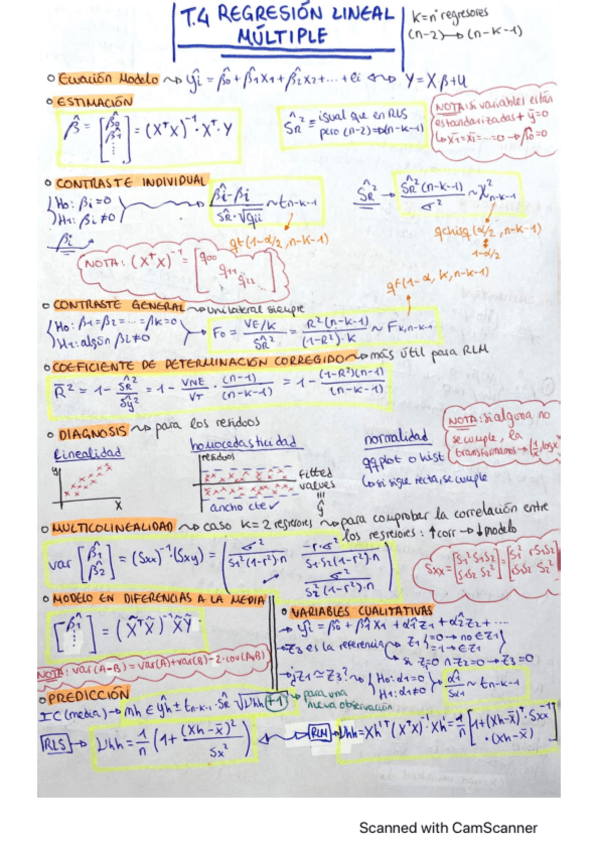 T.4 REGRESIÓN LINEAL MÚLTIPLE
K = nº regresores
(n-2) → (n-K-1)
ECUACIÓN MODELO ⇝ ŷi = β̂0 + β̂1x1 + β̂2x2 + ... + ei ⇔ Y = Xβ + U
ESTIMACIÓN
β̂ = [β̂0 β̂1 ⋮] = (XᵀX)⁻¹·Xᵀ·Y
ŜR² = igual que en RLS
pero (n-2) ⇒ (n-K-1)
NOTA: si variables están
estandarizadas + ȳ=0
↳ x̄1 = x̄2 = ... = 0 → β̂0 = 0
CONTRASTE INDIVIDUAL
{H0: βi = 0
H1: βi ≠ 0
(β̂i - βi) / (ŜR·√qii) ~ tn-k-1
ŜR² → ŜR²(n-k-1) / σ² ~ χ²n-k-1
βi
qt(1-α/2, n-k-1)
qchisq(α/2, n-k-1)
1-α/2
NOTA: (XᵀX)⁻¹ = [q00 q11 q22]
qf(1-α, k, n-k-1)
CONTRASTE GENERAL ⇝ unilateral siempre
{H0: β1 = β2 = ... = βk = 0
H1: algún βi ≠ 0
F0 = (VE/K) / ŜR² = R²(n-k-1) / (1-R²)·K ~ FK,n-k-1
COEFICIENTE DE DETERMINACIÓN CORREGIDO ⇝ más útil para RLM
R̄² = 1 - ŜR²/Ŝy² = 1 - VNE/VT · (n-1)/(n-k-1) = 1 - (1-R²)(n-1)/(n-k-1)
DIAGNOSIS ⇝ para los residuos
NOTA: si alguna no
se cumple, la
transformamos →
linealidad
homocedasticidad
normalidad
y
x
residuos
fitted
values
ŷ
ancho cte ✓
qqplot o hist
↳ si sigue recta, se cumple
MULTICOLINEALIDAD ⇝ caso K=2 regresores ⇝ para comprobar la correlación entre
los regresores: ↑corr → ↓modelo
var [β̂1 β̂2] = (Sxx)⁻¹(Sxy) = ( σ² / S1²(1-r²)·n   -r·σ² / S1S2(1-r²)·n
σ² / S2²(1-r²)·n )
Sxx = [S1² S1S2 S1S2 S2²] = [S1² rS1S2 rS1S2 S2²]
MODELO EN DIFERENCIAS A LA MEDIA
[β̂1 ⋮] = (X̃ᵀX̃)⁻¹X̃Ỹ
NOTA: var(A-B) = var(A) + var(B) - 2·cov(A,B)
VARIABLES CUALITATIVAS
→ ŷi = β̂0 + β̂1x1 + α̂1z1 + α̂2z2 + ...
→ z3 es la referencia → z1 {=0 → no ∈ z1
=1 → ∈ z1
si z1=0 ∩ z2=0 → z3=0
→ ¿z1 ≃ z3? → {H0: α1=0
H1: α1≠0
~ tn-k-1
PREDICCIÓN
IC (media) → mh ∈ ŷh ± tn-k-1 · ŜR √(νhh + 1) → para una
nueva observación
RLS → νhh = 1/n (1 + (Xh - x̄)² / Sx²)
RLM → νhh = Xhᵀ(XᵀX)⁻¹·Xh = 1/n [1 + (Xh - x̄)·Sxx⁻¹
·(Xh - x̄)]
Scanned with CamScanner